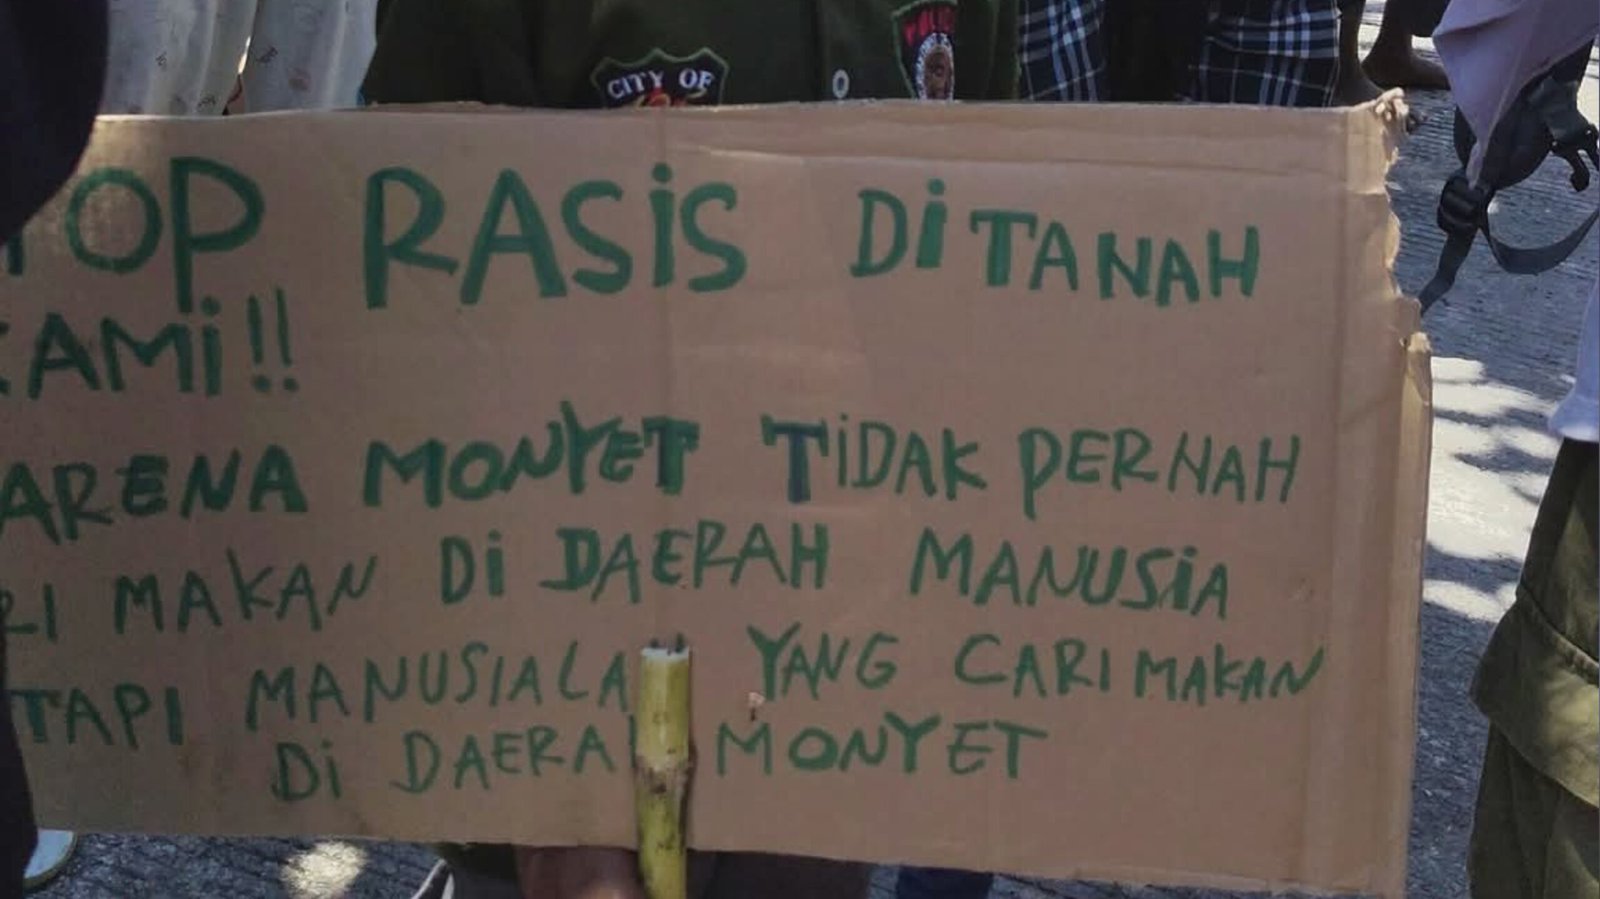 CITY OF
TOP RASIS DITANAH
KAMI!!
ARENA MONYET TIDAK PERNAH
RI MAKAN DI DAERAH MANUSIA
TAPI MANUSIALA YANG CARI MAKAN
DI DAERAH MONYET